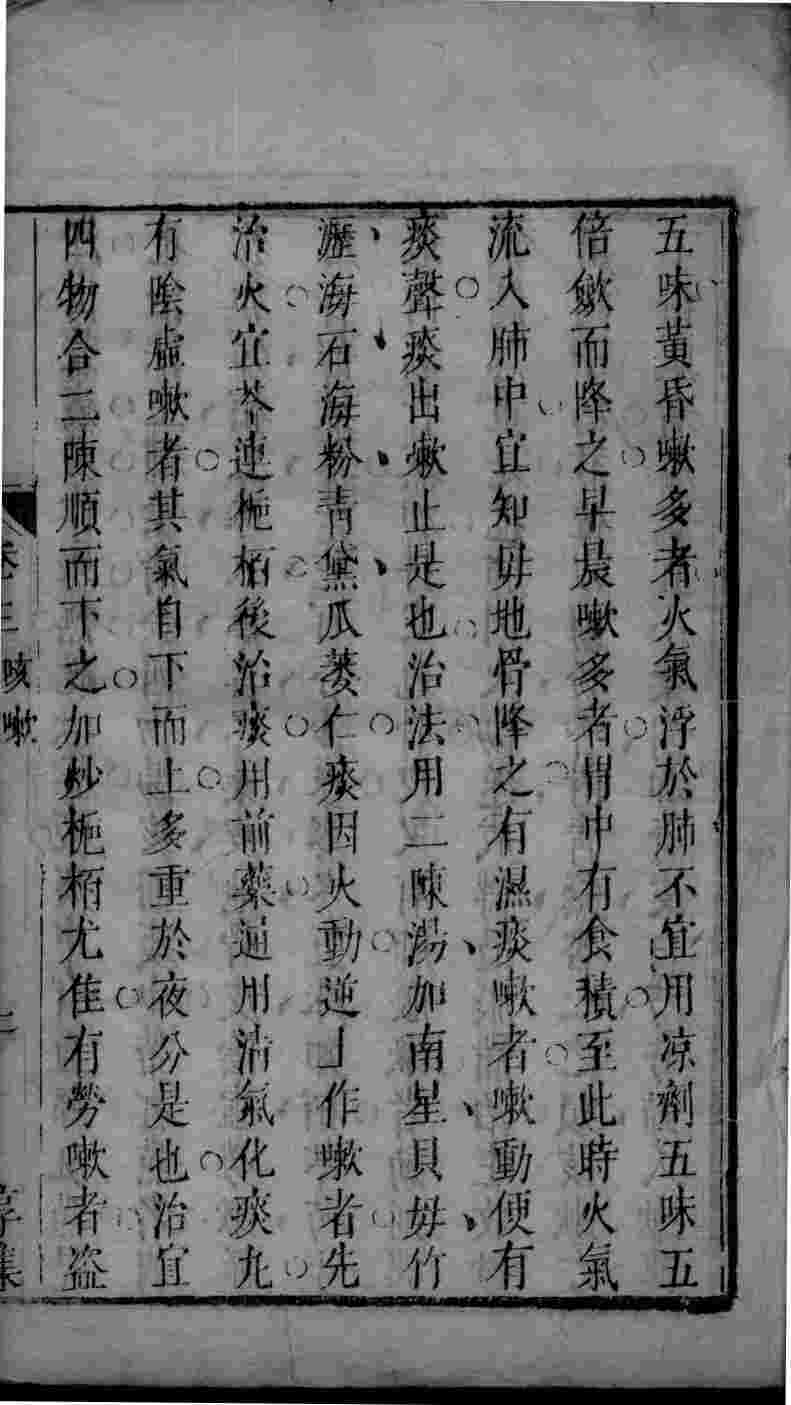 五味黃昏嗽多者火氣浮於肺不宜用凉劑五味五
倍歛而降之早晨嗽多者胃中有食積至此時火氣
流入肺中宜知母地骨降之有濕痰嗽者嗽動便有
痰聲痰出嗽止是也治法用二陳湯加南星貝母竹
瀝海石海粉青黛瓜蔞仁痰因火動逆上作嗽者先
治火宜芩連梔栢後治痰用前藥通用清氣化痰丸
有陰虛嗽者其氣自下而上多重於夜分是也治宜
四物合二陳順而下之加炒梔栢尤佳有勞嗽者盗
卷三 咳嗽